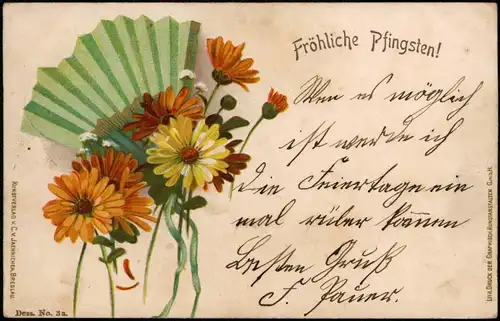 Fröhliche Pfingsten!
Wen es möglich
ist werde ich
die Feiertage ein
mal rüler kommen
Besten Gruß
F. Pauer.
KUNSTVERLAG V. C. V. JAERNICHEN, BRESLAU
Dess. No. 3a.
LITH. DRUCK DER GRAPHISCH. KUNSTANSTALTEN G.M.B.H.